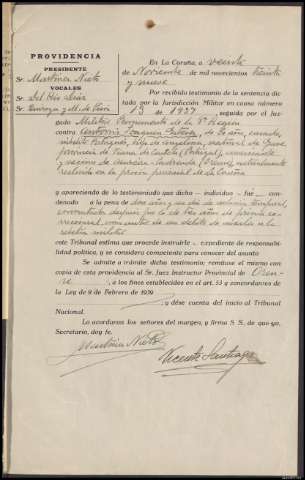 PROVIDENCIA
PRESIDENTE
Sr. Martínez Nieto
VOCALES
Sr. Del Río
Sr.
En La Coruña, a veinte
de Noviembre de mil novecientos treinta
y nueve
Por recibido testimonio de la sentencia dic-
tada por la Jurisdicción Militar en causa número
de 1937 del Juz-
gado Militar Permanente de la 8ª Región
contra Antonio de años, casado,
natural de
provincia de Viana do Castelo (Portugal),
y vecino de (Orense), actualmente
recluido en la prisión provincial de La Coruña
y apareciendo de lo testimoniado que dicho individuo fué con-
denado a la pena de dos años y un día de
conmutada después por la de tres años de prisión co-
rreccional, como autor de un delito de auxilio a la
rebelión militar
este Tribunal estima que procede instruirle expediente de responsabili-
dad política, y se considera competente para conocer del asunto
Se admite a trámite dicho testimonio remítase el mismo con
copia de esta providencia al Sr. Juez Instructor Provincial de Oren-
se, a los fines establecidos en el art. 53 y concordantes de
la Ley de 9 de Febrero de 1939
y dése cuenta del inicio al Tribunal
Nacional.
Lo acordaron los señores del margen, y firma S. S. de que yo,
Secretario, doy fe.
Martínez Nieto
Vicente Santiago